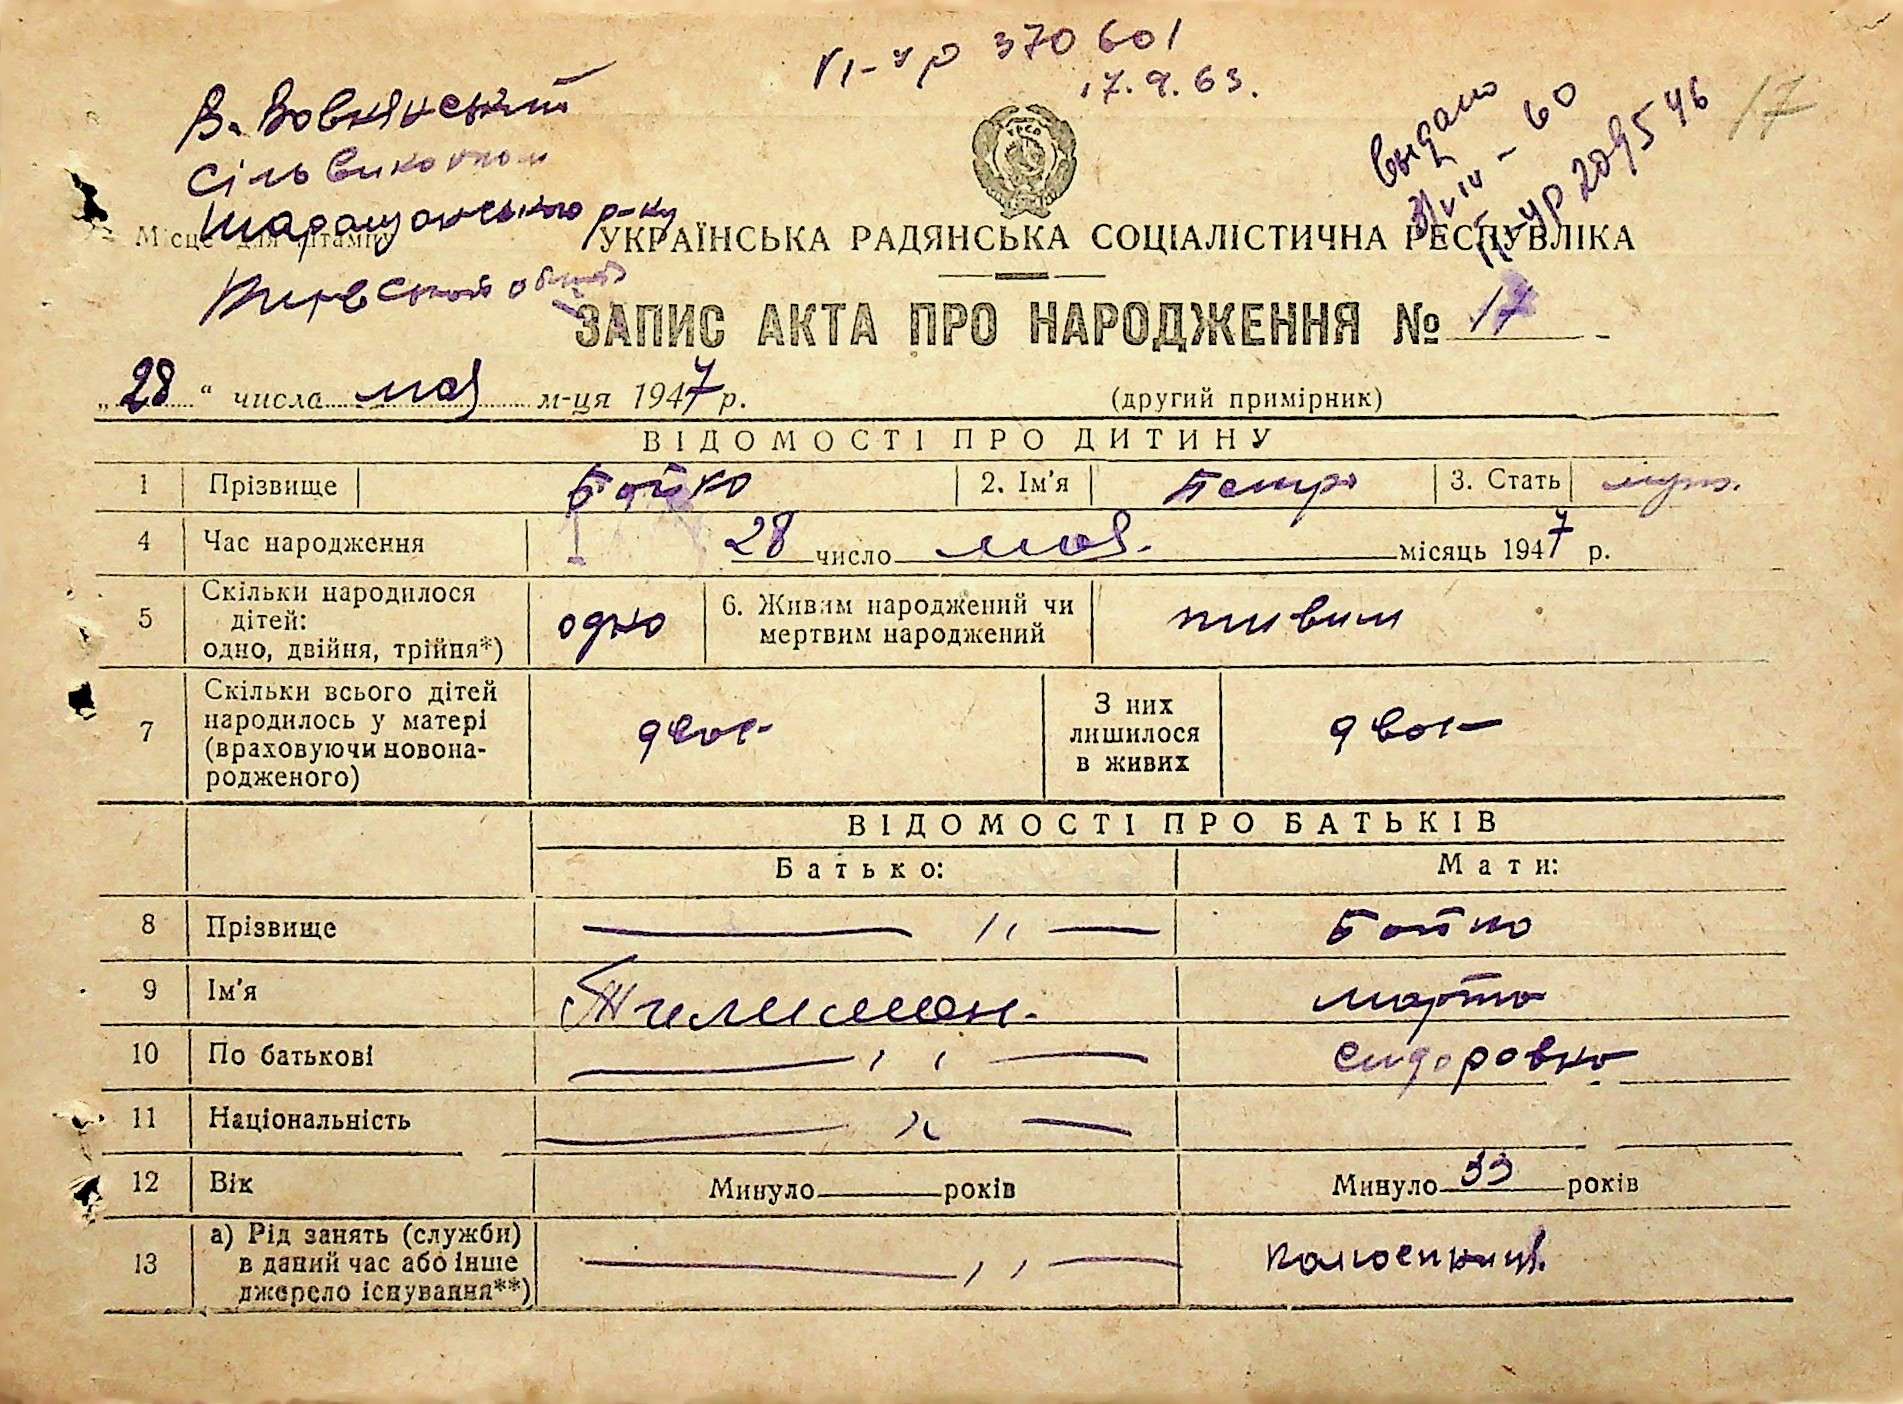 VI-ур 370601
17.9.63.
В. Вовнянський
сільвиконком
Таращанського р-ну
Київской області
выдано
60
ур 2095 46
17
УРСР
Місце для штампу
УКРАЇНСЬКА РАДЯНСЬКА СОЦІАЛІСТИЧНА РЕСПУБЛІКА
ЗАПИС АКТА ПРО НАРОДЖЕННЯ № 17
„28“ числа мая м-ця 1947 р. (другий примірник)
ВІДОМОСТІ ПРО ДИТИНУ
1 Прізвище Бойко 2. Ім'я Петро 3. Стать муж.
4 Час народження 28 число мая. місяць 1947 р.
5 Скільки народилося дітей: одно, двійня, трійня*) одно 6. Живим народжений чи мертвим народжений живим
7 Скільки всього дітей народилось у матері (враховуючи новонародженого) двое З них лишилося в живих двое
ВІДОМОСТІ ПРО БАТЬКІВ
Батько: Мати:
8 Прізвище — „ — Бойко
9 Ім'я Марта
10 По батькові — „ — Сидоровна
11 Національність — „ —
12 Вік Минуло років Минуло 33 років
13 а) Рід занять (служби) в даний час або інше джерело існування**) — „ — колгоспниця